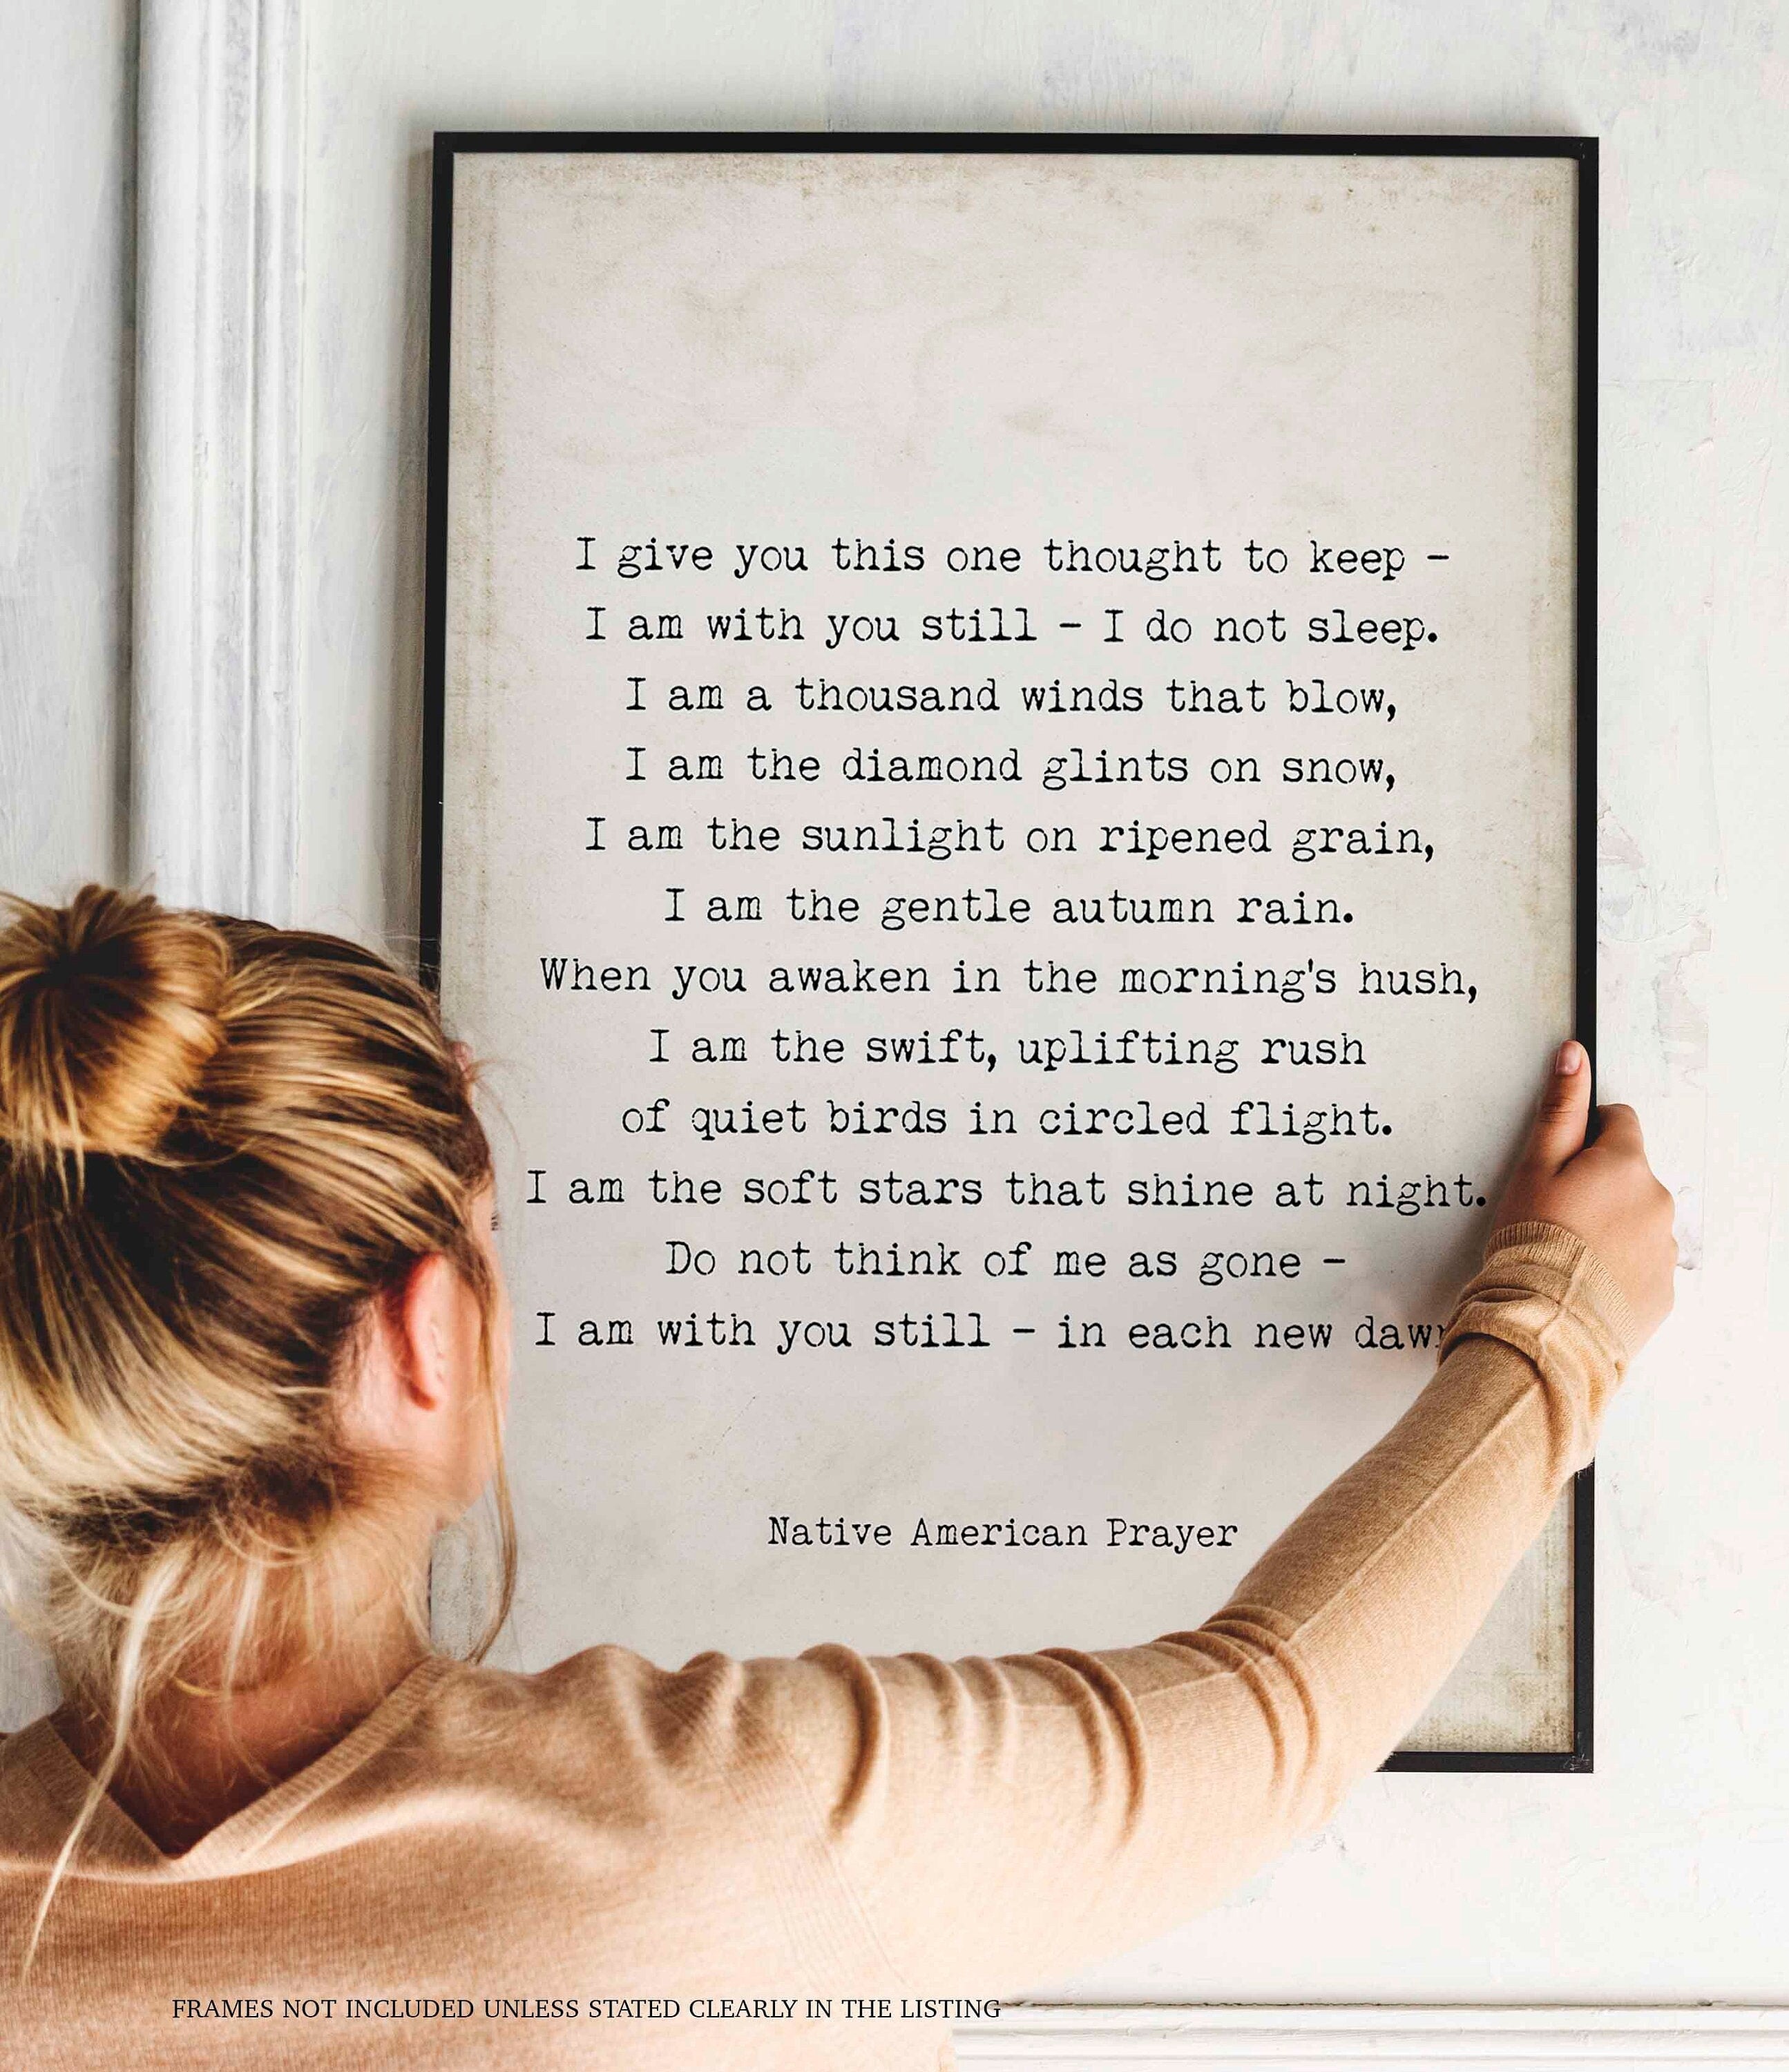 I give you this one thought to keep -
I am with you still - I do not sleep.
I am a thousand winds that blow,
I am the diamond glints on snow,
I am the sunlight on ripened grain,
I am the gentle autumn rain.
When you awaken in the morning's hush,
I am the swift, uplifting rush
of quiet birds in circled flight.
I am the soft stars that shine at night.
Do not think of me as gone -
I am with you still - in each new
Native American Prayer
FRAMES NOT INCLUDED UNLESS STATED CLEARLY IN THE LISTING